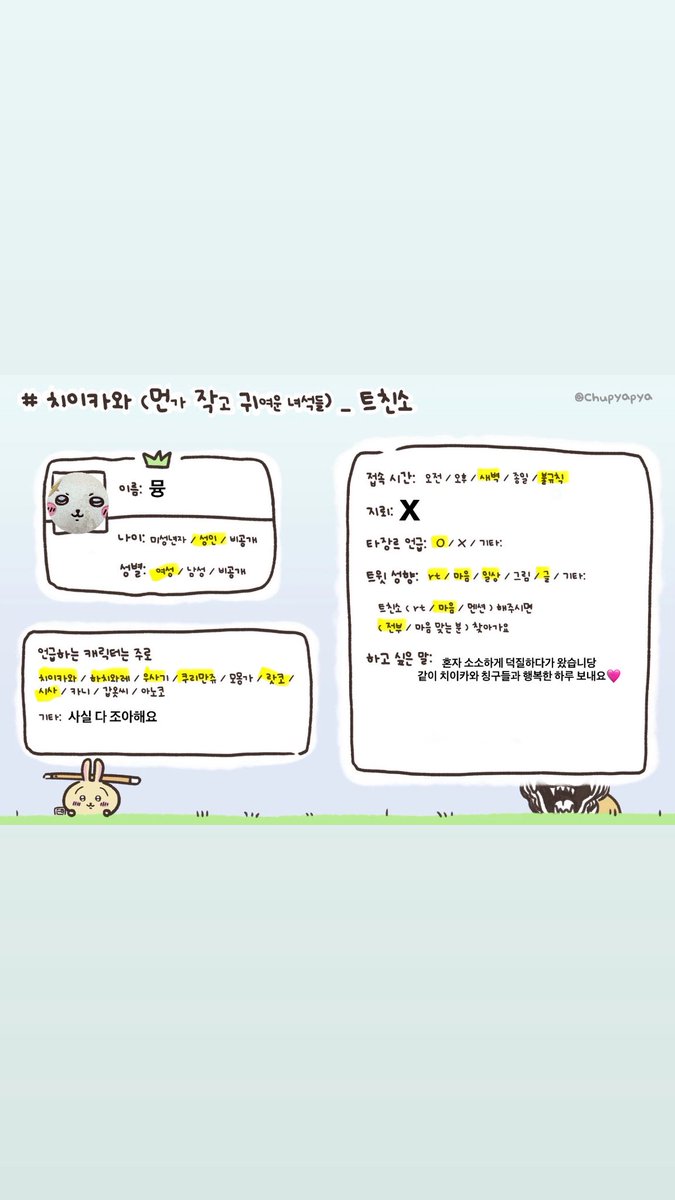 # 치이카와 (먼가 작고 귀여운 녀석들) _ 트친소
@Chupyapya
이름: 뮹
나이: 미성년자 / 성인 / 비공개
성별: 여성 / 남성 / 비공개
언급하는 캐릭터는 주로
치이카와 / 하치와레 / 우사기 / 쿠리만쥬 / 모몽가 / 랏코 /
시사 / 카니 / 갑옷씨 / 아노코
기타: 사실 다 조아해요
접속 시간: 오전 / 오후 / 새벽 / 종일 / 불규칙
지뢰: X
타장르 언급: O / X / 기타:
트윗 성향: rt / 마음 / 일상 / 그림 / 글 / 기타:
트친소 ( rt / 마음 / 멘션 ) 해주시면
( 전부 / 마음 맞는 분 ) 찾아가요
하고 싶은 말: 혼자 소소하게 덕질하다가 왔습니당
같이 치이카와 칭구들과 행복한 하루 보내요💗